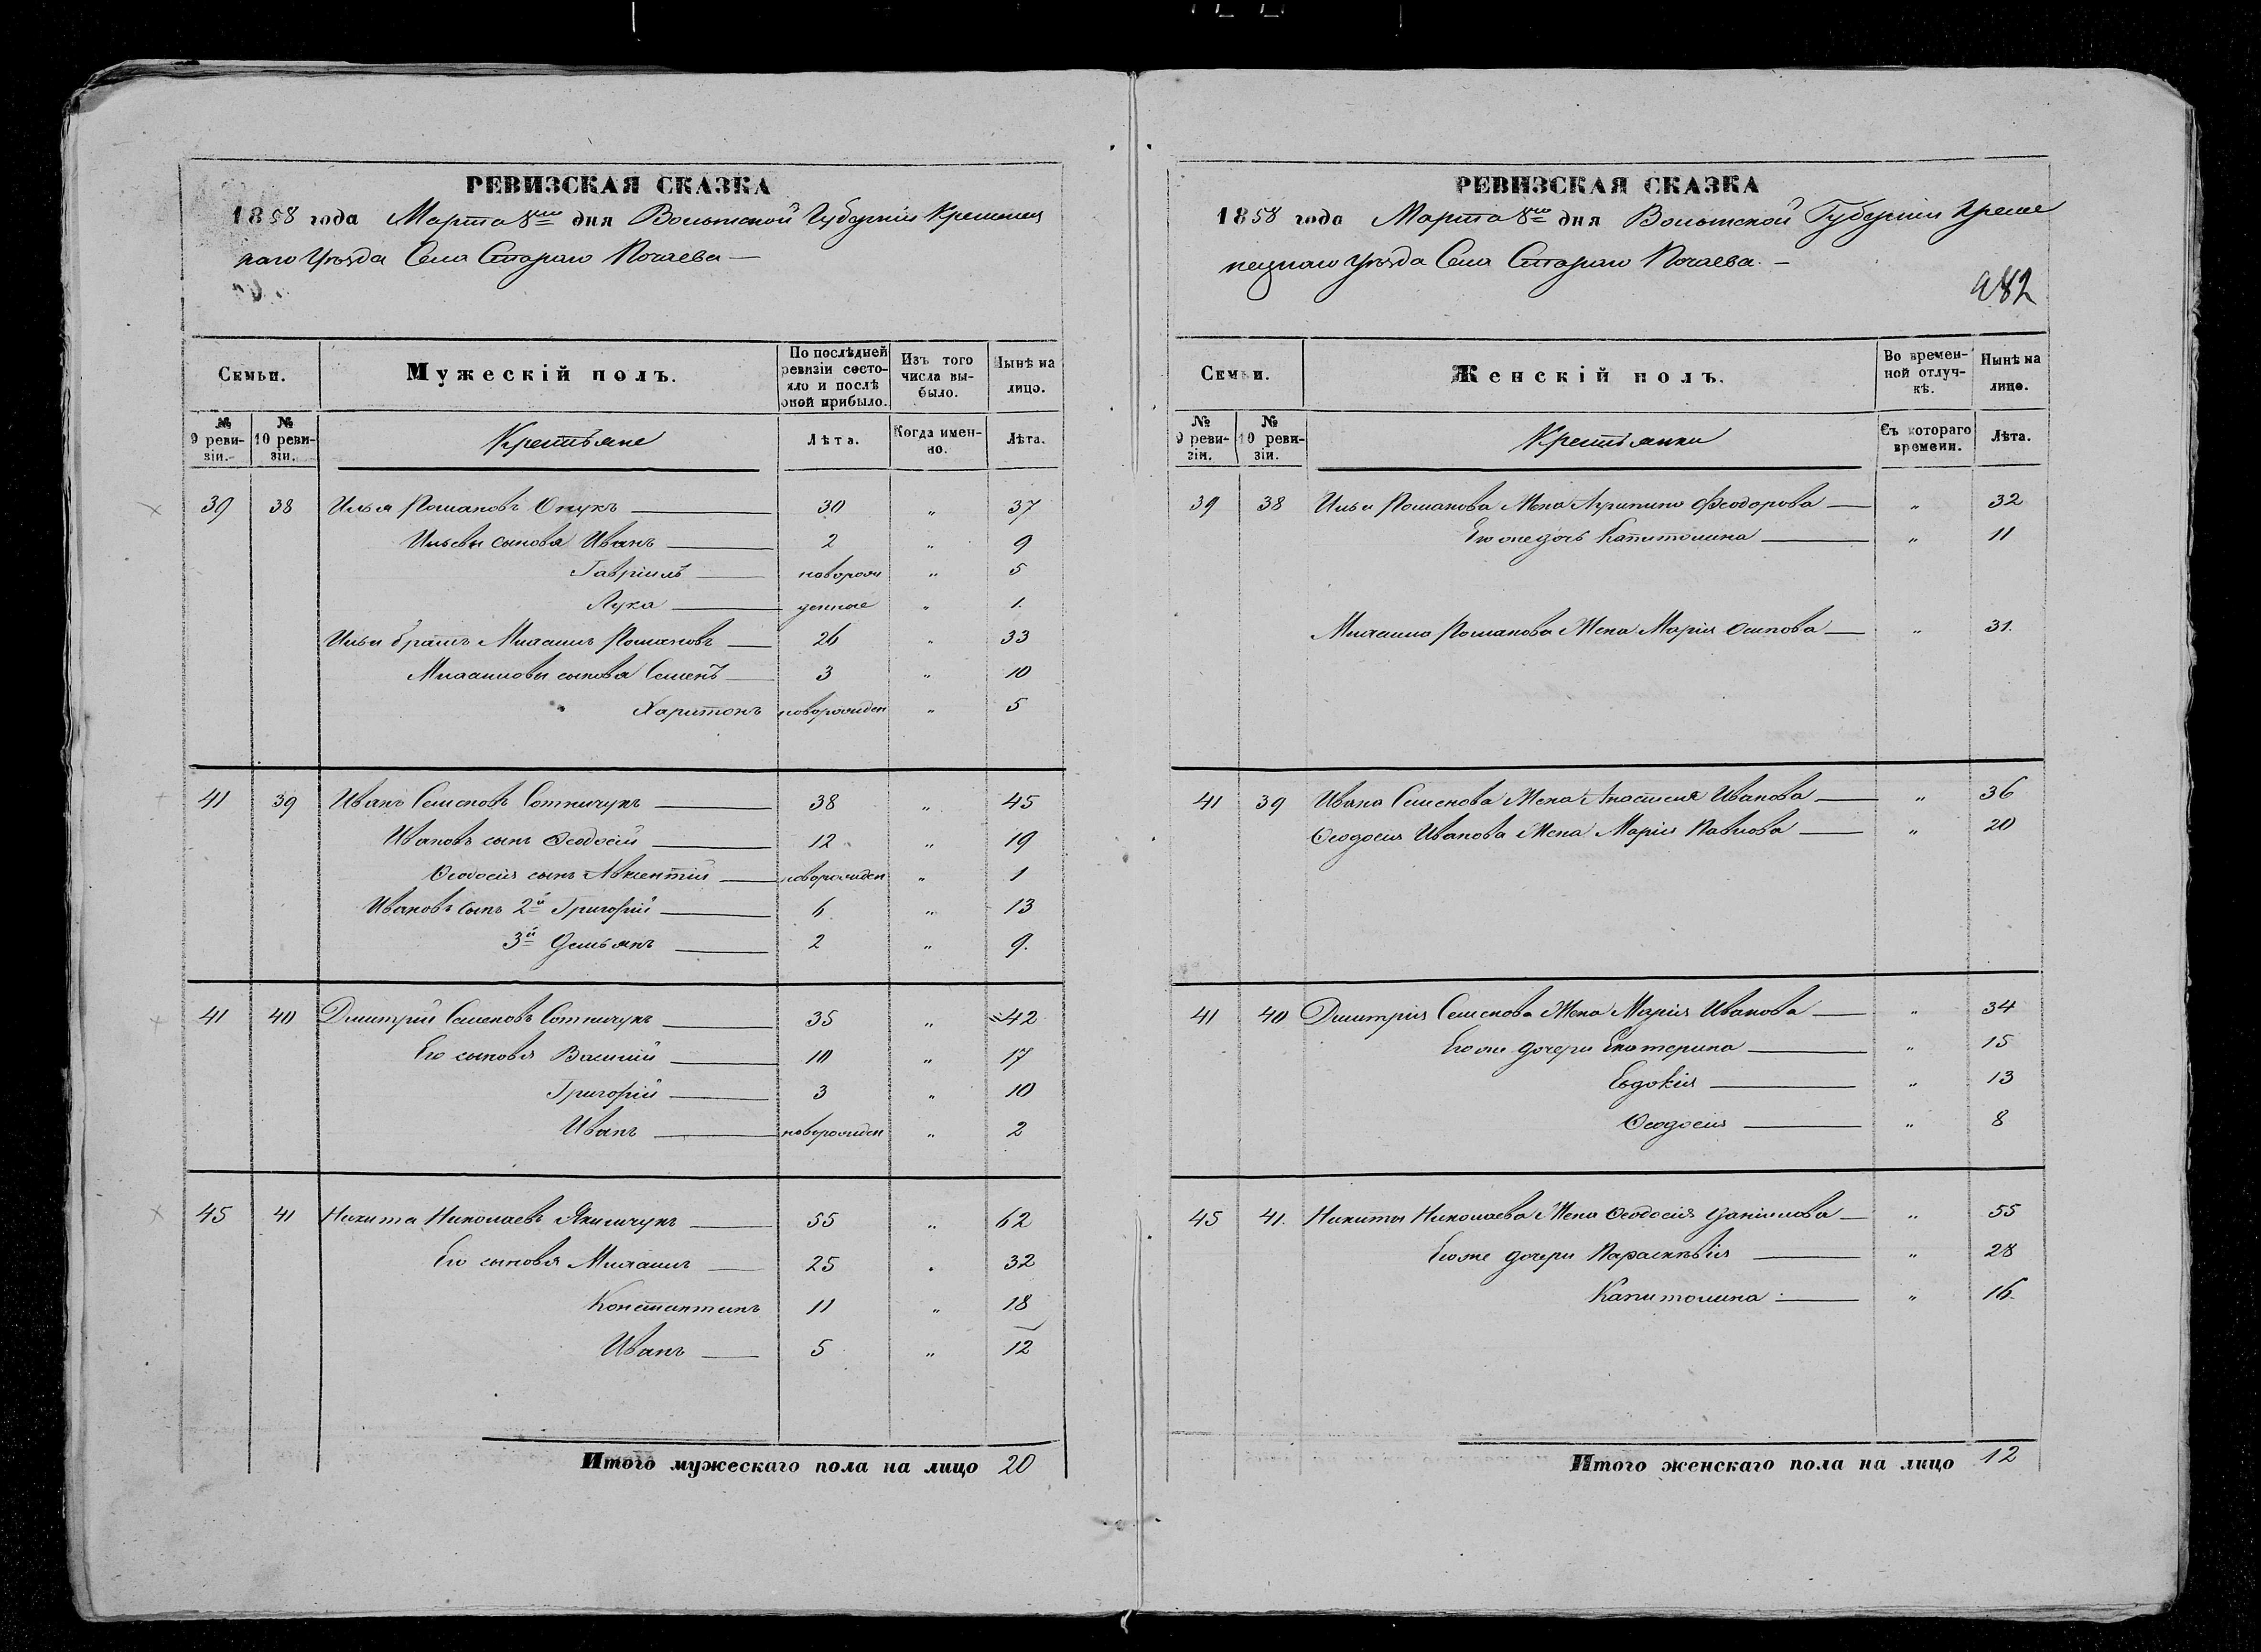 РЕВИЗСКАЯ СКАЗКА
1858 года Марта 8го дня Волынской Губерніи Кременец
каго Уѣзда Села Стараго Почаева —
Семьи.
Мужескій полъ.
По послѣдней ревизіи состояло и послѣ оной прибыло.
Изъ того числа выбыло.
Нынѣ на лицо.
№ 9 ревизіи.
№ 10 ревизіи.
Крестьяне
Лѣта.
Когда именно.
Лѣта.
39 38 Илья Романовъ Опукъ 30 " 37
Ильевы сыновья Иванъ 2 " 9
Гавріилъ новорож " 5
Лука денные " 1.
Ильи братъ Михаилъ Романовъ 26 " 33
Михаиловы сыновья Семенъ 3 " 10
Харитонъ новорожден " 5
41 39 Иванъ Семеновъ Сотничукъ 38 " 45
Ивановъ сынъ Ѳеодосій 12 " 19
Ѳеодосія сынъ Авксентій новорожден " 1
Ивановъ сынъ 2й Григорій 6 " 13
3й Демьянъ 2 " 9.
41 40 Дмитрій Семеновъ Сотничукъ 35 " 42
Его сыновья Василій 10 " 17
Григорій 3 " 10
Иванъ новорожден " 2
45 41 Никита Николаевъ Якимчукъ 55 " 62
Его сыновья Михаилъ 25 " 32
Константинъ 11 " 18
Иванъ 5 " 12
Итого мужескаго пола на лицо 20
РЕВИЗСКАЯ СКАЗКА
1858 года Марта 8го дня Волынской Губерніи Креме
нецкаго Уѣзда Села Стараго Почаева. —
482
Семьи.
Женскій полъ.
Во временной отлучкѣ.
Нынѣ на лицо.
№ 9 ревизіи.
№ 10 ревизіи.
Крестьянки
Съ котораго времени.
Лѣта.
39 38 Ильи Романова Жена Агрипина Феодорова " 32
Его же дочь Капитолина " 11
Михаила Романова Жена Марія Осипова " 31.
41 39 Ивана Семенова Жена Анастасія Иванова " 36
Ѳеодосія Иванова Жена Марія Павлова " 20
41 40 Дмитрія Семенова Жена Марія Иванова " 34
Его же дочери Екатерина " 15
Евдокія " 13
Ѳеодосія " 8
45 41. Никиты Николаева Жена Ѳеодосія Даніилова " 55
Его же дочери Параскевія " 28
Капитолина " 16.
Итого женскаго пола на лицо 12